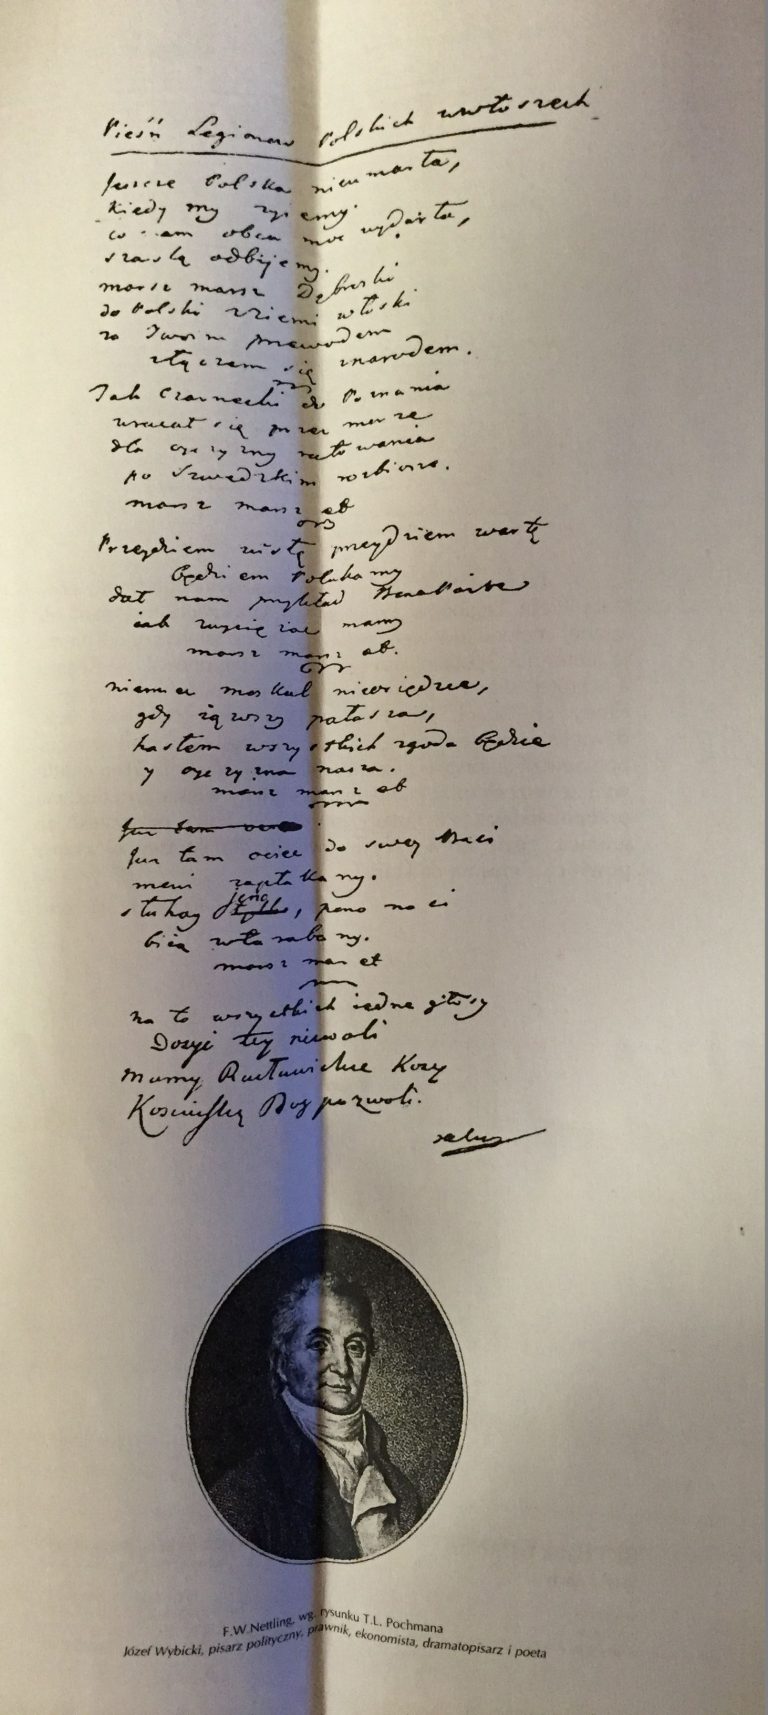 Pieśń Legionow Polskich wewłoszech
Jeszcze Polska nieumarła,
kiedy my zyiemy.
co nam obca moc wydarła,
szablą odbijemy.
marsz marsz Dąbroski
do Polski zziemi włoski
za Twoim przewodem
złączem się znarodem.
Jak Czarnecki do Poznania
wracał się przez morze
dla oyczyzny ratowania
po Szwedzkim rozbiorze.
marsz marsz et
Przeydziem wisłę przeydziem wartę
będziem Polakamy
dał nam przykład Bonaparte
iak zwycięzac mamy
marsz marsz et.
niemiec moskal nieosiędzie,
gdy iąwszy pałasza,
hasłem wszystkich zgoda będzie
y oyczyzna nasza.
marsz marsz et
Juz tam
Juz tam ociec do swey Basi
mowi zapłakany.
słuchay jeno, pono nasi
bią wtarabany.
marsz mar et
na to wszystkich iedne głosy
Dosyć tey niewoli
mamy Racławickie Kosy
Kosciuszkę Bog pozwoli.
F.W.Nettling, wg. rysunku T.L. Pochmana
Józef Wybicki, pisarz polityczny, prawnik, ekonomista, dramatopisarz i poeta